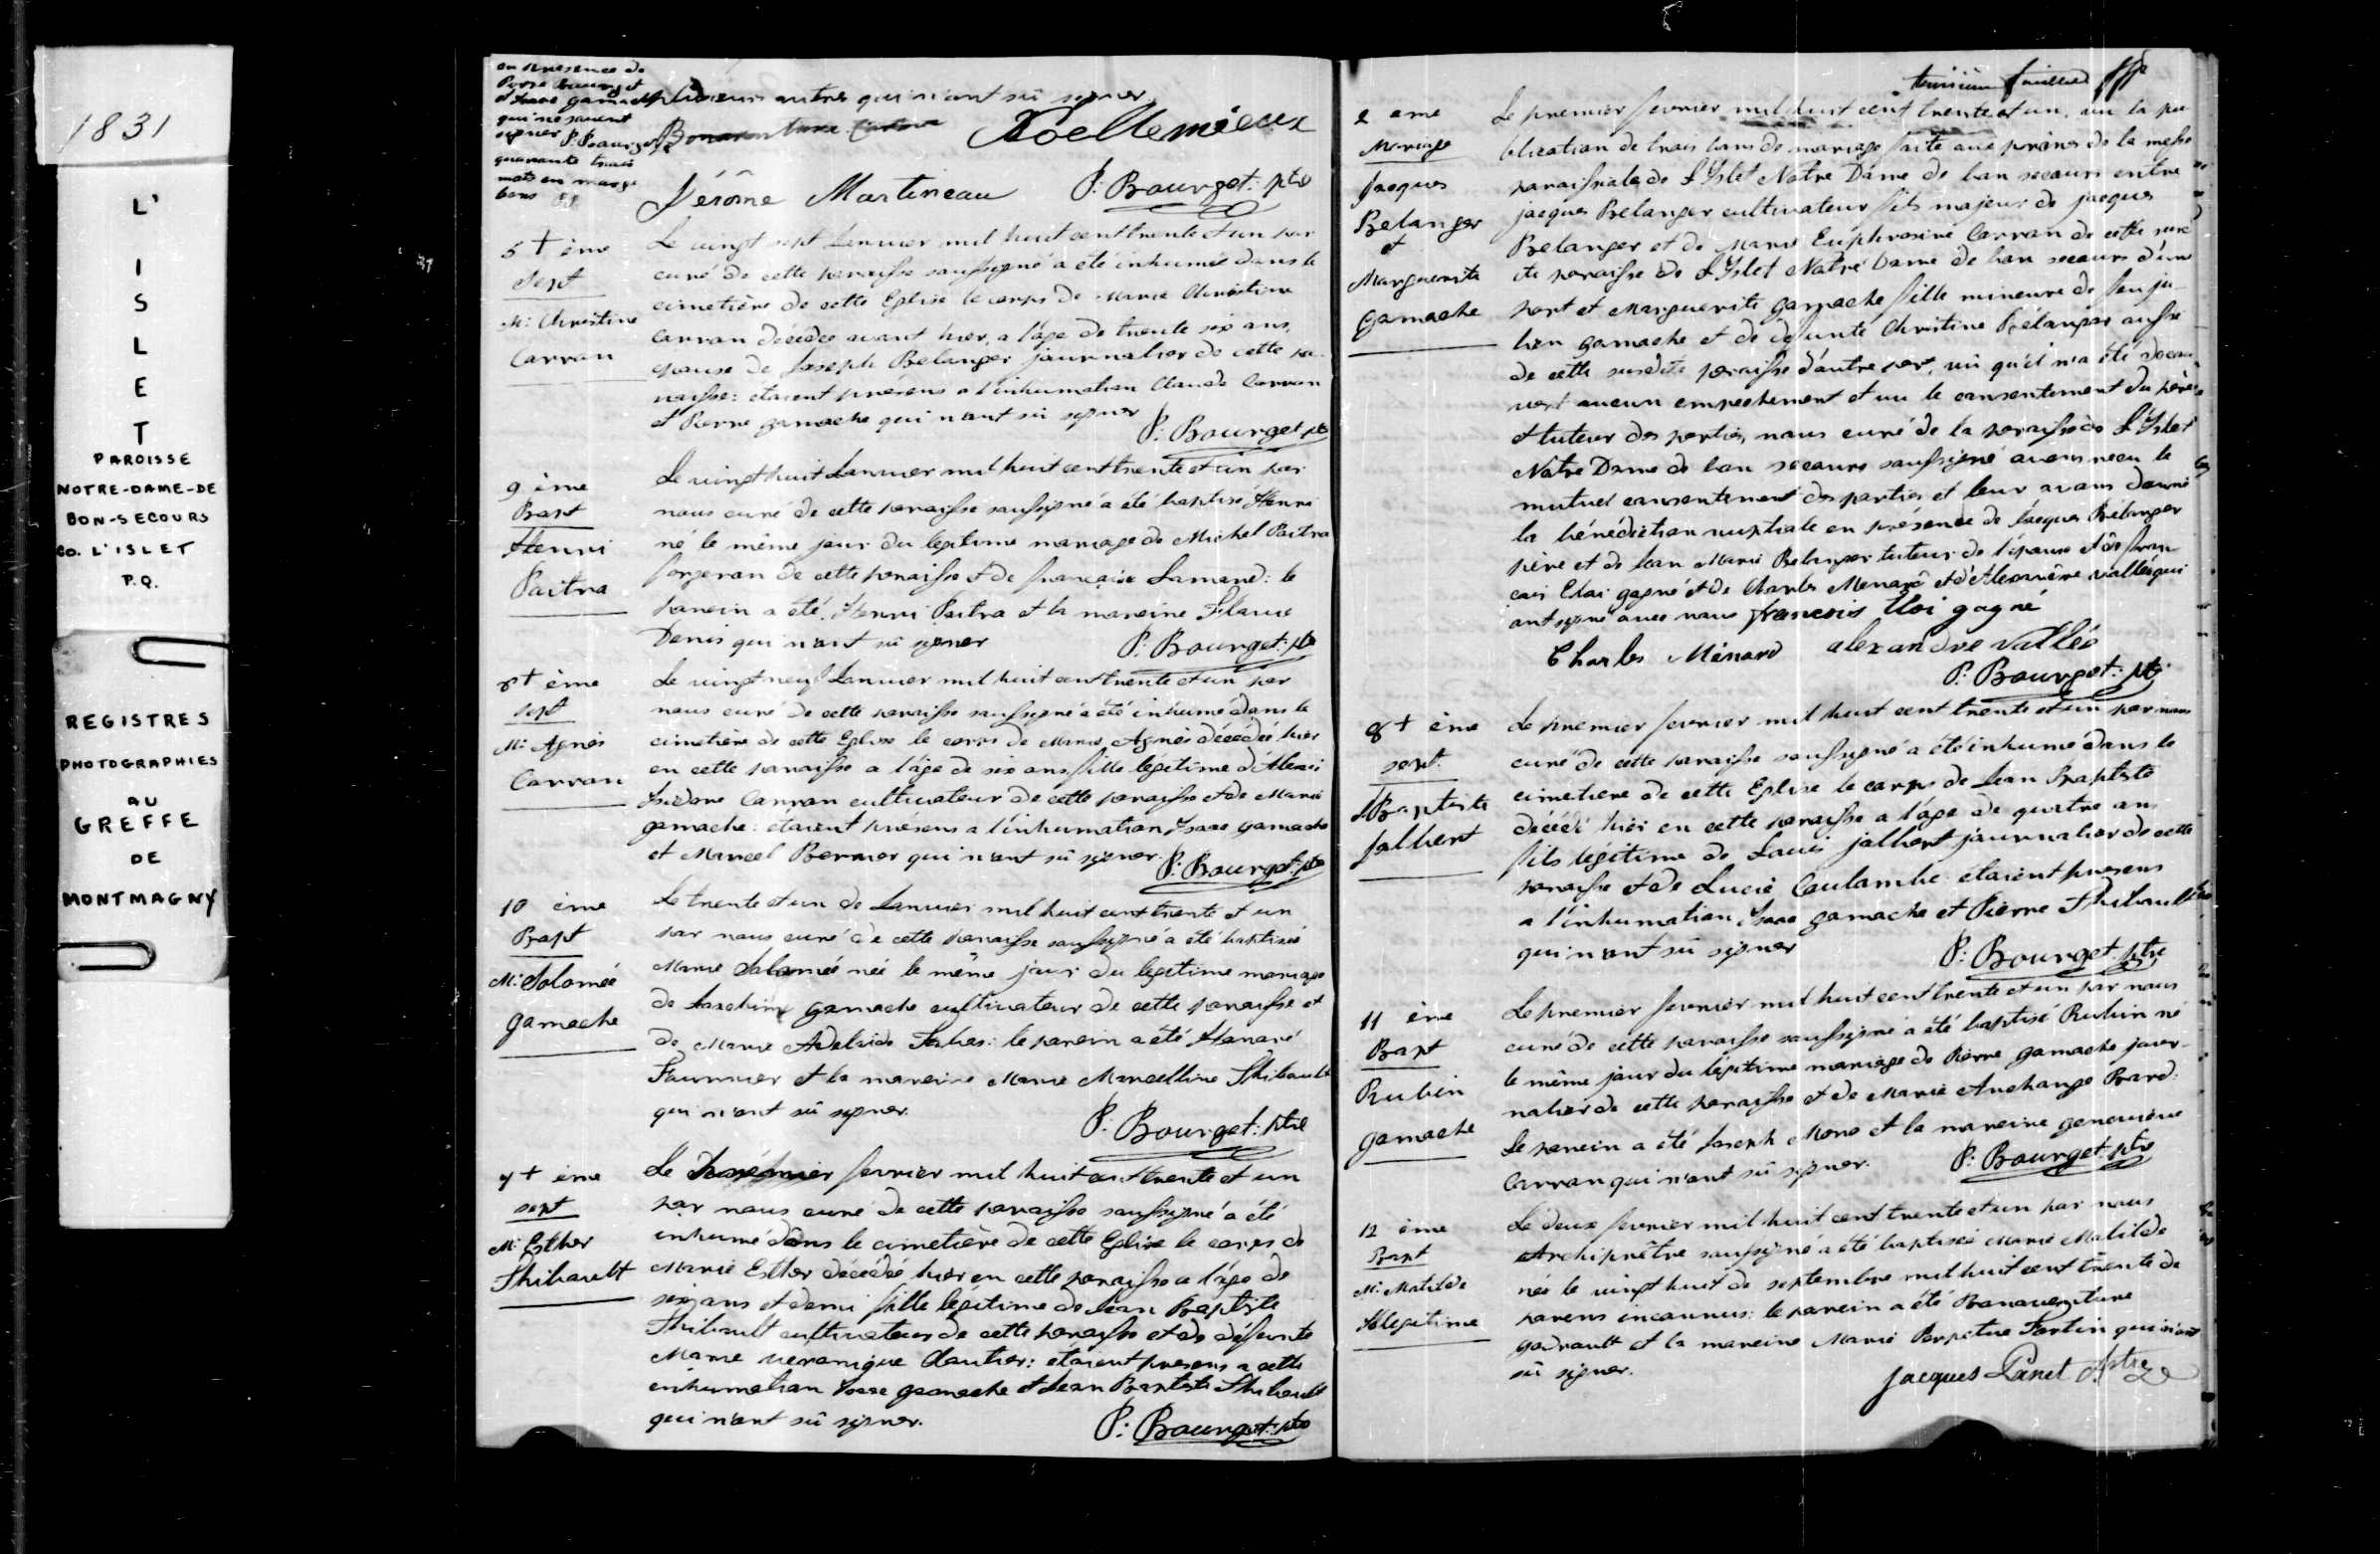 1831
L'
I
S
L
E
T
PAROISSE
NOTRE-DAME-DE
BON-SECOURS
Co. L'ISLET
P.Q.
REGISTRES
PHOTOGRAPHIES
AU
GREFFE
DE
MONTMAGNY
en presence de
et Isaac gamache
qui ne savent
signer P. Bourget
quarante trois
mots en marge
bons
plusieurs autres qui n'ont sû signer
Bonaventure
Noel lemieux
Jérôme Martineau P: Bourget: ptre
5+ ème
Sept
M: Christine
Carran
Le vingt sept Janvier mil huit cent trente et un par
curé de cette paroisse soussigné a été inhumée dans le
cimetière de cette Eglise le corps de Marie Christine
Carran décédée avant hier, a l'age de trente six ans,
epouse de Joseph Belanger journalier de cette pa-
roisse: etaient présens a l'inhumation Claude Carran
et Pierre gamache qui n'ont sû signer
P: Bourget ptre
9 ème
Bapt
Henri
Poitra
Le vingt huit Janvier mil huit cent trente et un par
nous curé de cette paroisse soussigné a été baptisé Henri
né le même jour du legitime mariage de Michel Poitra
forgeron de cette paroisse et de françoise Lamand: le
parein a été Henri Poitra et la mareine
Denis qui n'ont sû signer
P: Bourget: ptre
6+ ème
sept
M: Agnès
Carran
Le vingt neuf Janvier mil huit cent trente et un par
nous curé de cette paroisse soussigné a été inhumé dans le
cimetière de cette Eglise le corps de Marie Agnès décédée hier
en cette paroisse a l'âge de six ans fille legitime d'Alexis
Isidore Carran cultivateur de cette paroisse et de Marie
gamache: etaient présens a l'inhumation Isaac gamache
et Marcel Bernier qui n'ont sû signer. P: Bourget: ptre
10 ème
Bapt
M: Solomée
gamache
Le trente et un de Janvier mil huit cent trente et un
par nous curé de cette paroisse soussigné a été baptisée
Marie Salomée née le même jour du legitime mariage
de Joachim gamache cultivateur de cette paroisse et
de Marie Adelaide: le parein a été Honoré
Fournier et la mareine Marie Marcelline Thibault
qui n'ont sû signer.
P: Bourget: ptre
7+ ème
sept
M: Esther
Thibault
Le fevrier mil huit cent trente et un
par nous curé de cette paroisse soussigné a été
inhumé dans le cimetière de cette Eglise le corps de
Marie Esther décédée hier en cette paroisse a l'age de
six ans et demi fille legitime de Jean Baptiste
Thibault cultivateur de cette paroisse et de défunte
Marie veronique Cloutier: étaient presens a cette
inhumation Isaac gamache et Jean Baptiste Thibault
qui n'ont sû signer.
P: Bourget: ptre
troisieme feuillet
2 eme
Mariage
Jacques
Belanger
et
Marguerite
gamache
Le premier fevrier mil huit cent trente et un, vu la pu-
blication de trois bans de mariage faite aux prônes de la messe
paroissiale de L'Islet Notre Dame de bon secours entre
jacques Belanger cultivateur fils majeur de jacques
Belanger et de Marie Euphrosine Carran de cette sus
dite paroisse de L'Islet Notre Dame de bon secours d'une
part et Marguerite gamache fille mineure de feu ju-
lien gamache et de défunte Christine Bélanger aussi
de cette susdite paroisse d'autre part, vû qu'il n'a été decou
vert aucun empechement et vu le consentement du père
et tuteur des parties, nous curé de la paroisse de L'Islet
Notre Dame de bon secours soussigné avons recu le
mutuel consentement des parties et leur avons donné
la bénédiction nuptiale en présence de Jacques Bélanger
père et de Jean Marie Belanger tuteur de l'épouse et de fran-
cois Eloi gagné et de Charles Menard et d'Alexandre vallée qui
ont signé avec nous françois Eloi gagné
Charles Ménard alexandre vallée
P: Bourget: ptre
8+ ème
sept.
J Baptiste
Jalbert
Le premier fevrier mil huit cent trente et un par nous
curé de cette paroisse soussigné a été inhumé dans le
cimetiere de cette Eglise le corps de Jean Baptiste
décédé hier en cette paroisse a l'âge de quatre ans
fils légitime de Louis jalbert journalier de cette
paroisse et de Lucie Coulombe étaient presens
a l'inhumation Isaac gamache et Pierre Thibault
qui n'ont sû signer
P: Bourget ptre
11 ème
Bapt
Rubin
gamache
Le premier fevrier mil huit cent trente et un par nous
curé de cette paroisse soussigné a été baptisé Rubin né
le même jour du légitime mariage de Pierre gamache jour-
nalier de cette paroisse et de Marie Archange Bard:
Le parein a été Joseph et la mareine genevieve
Carran qui n'ont sû signer.
P: Bourget: ptre
12 ème
Bapt
M: Matilde
Illegitime
Le deux fevrier mil huit cent trente et un par nous
Archiprêtre soussigné a été baptisée Marie Matilde
née le vingt huit de septembre mil huit cent trente de
parens inconnus: le parein a été Bonaventure
godrault et la mareine Marie Perpetue Fortin qui n'ont
sû signer.
Jacques Panet Ptre